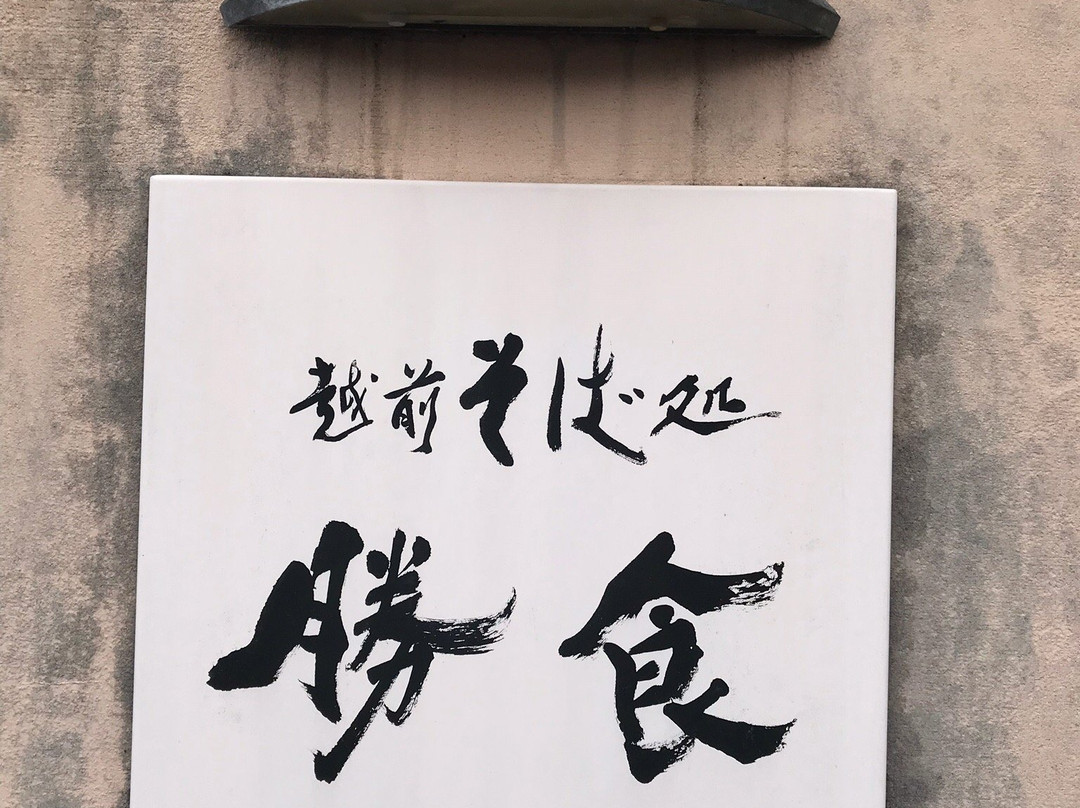 越前そば処
勝食